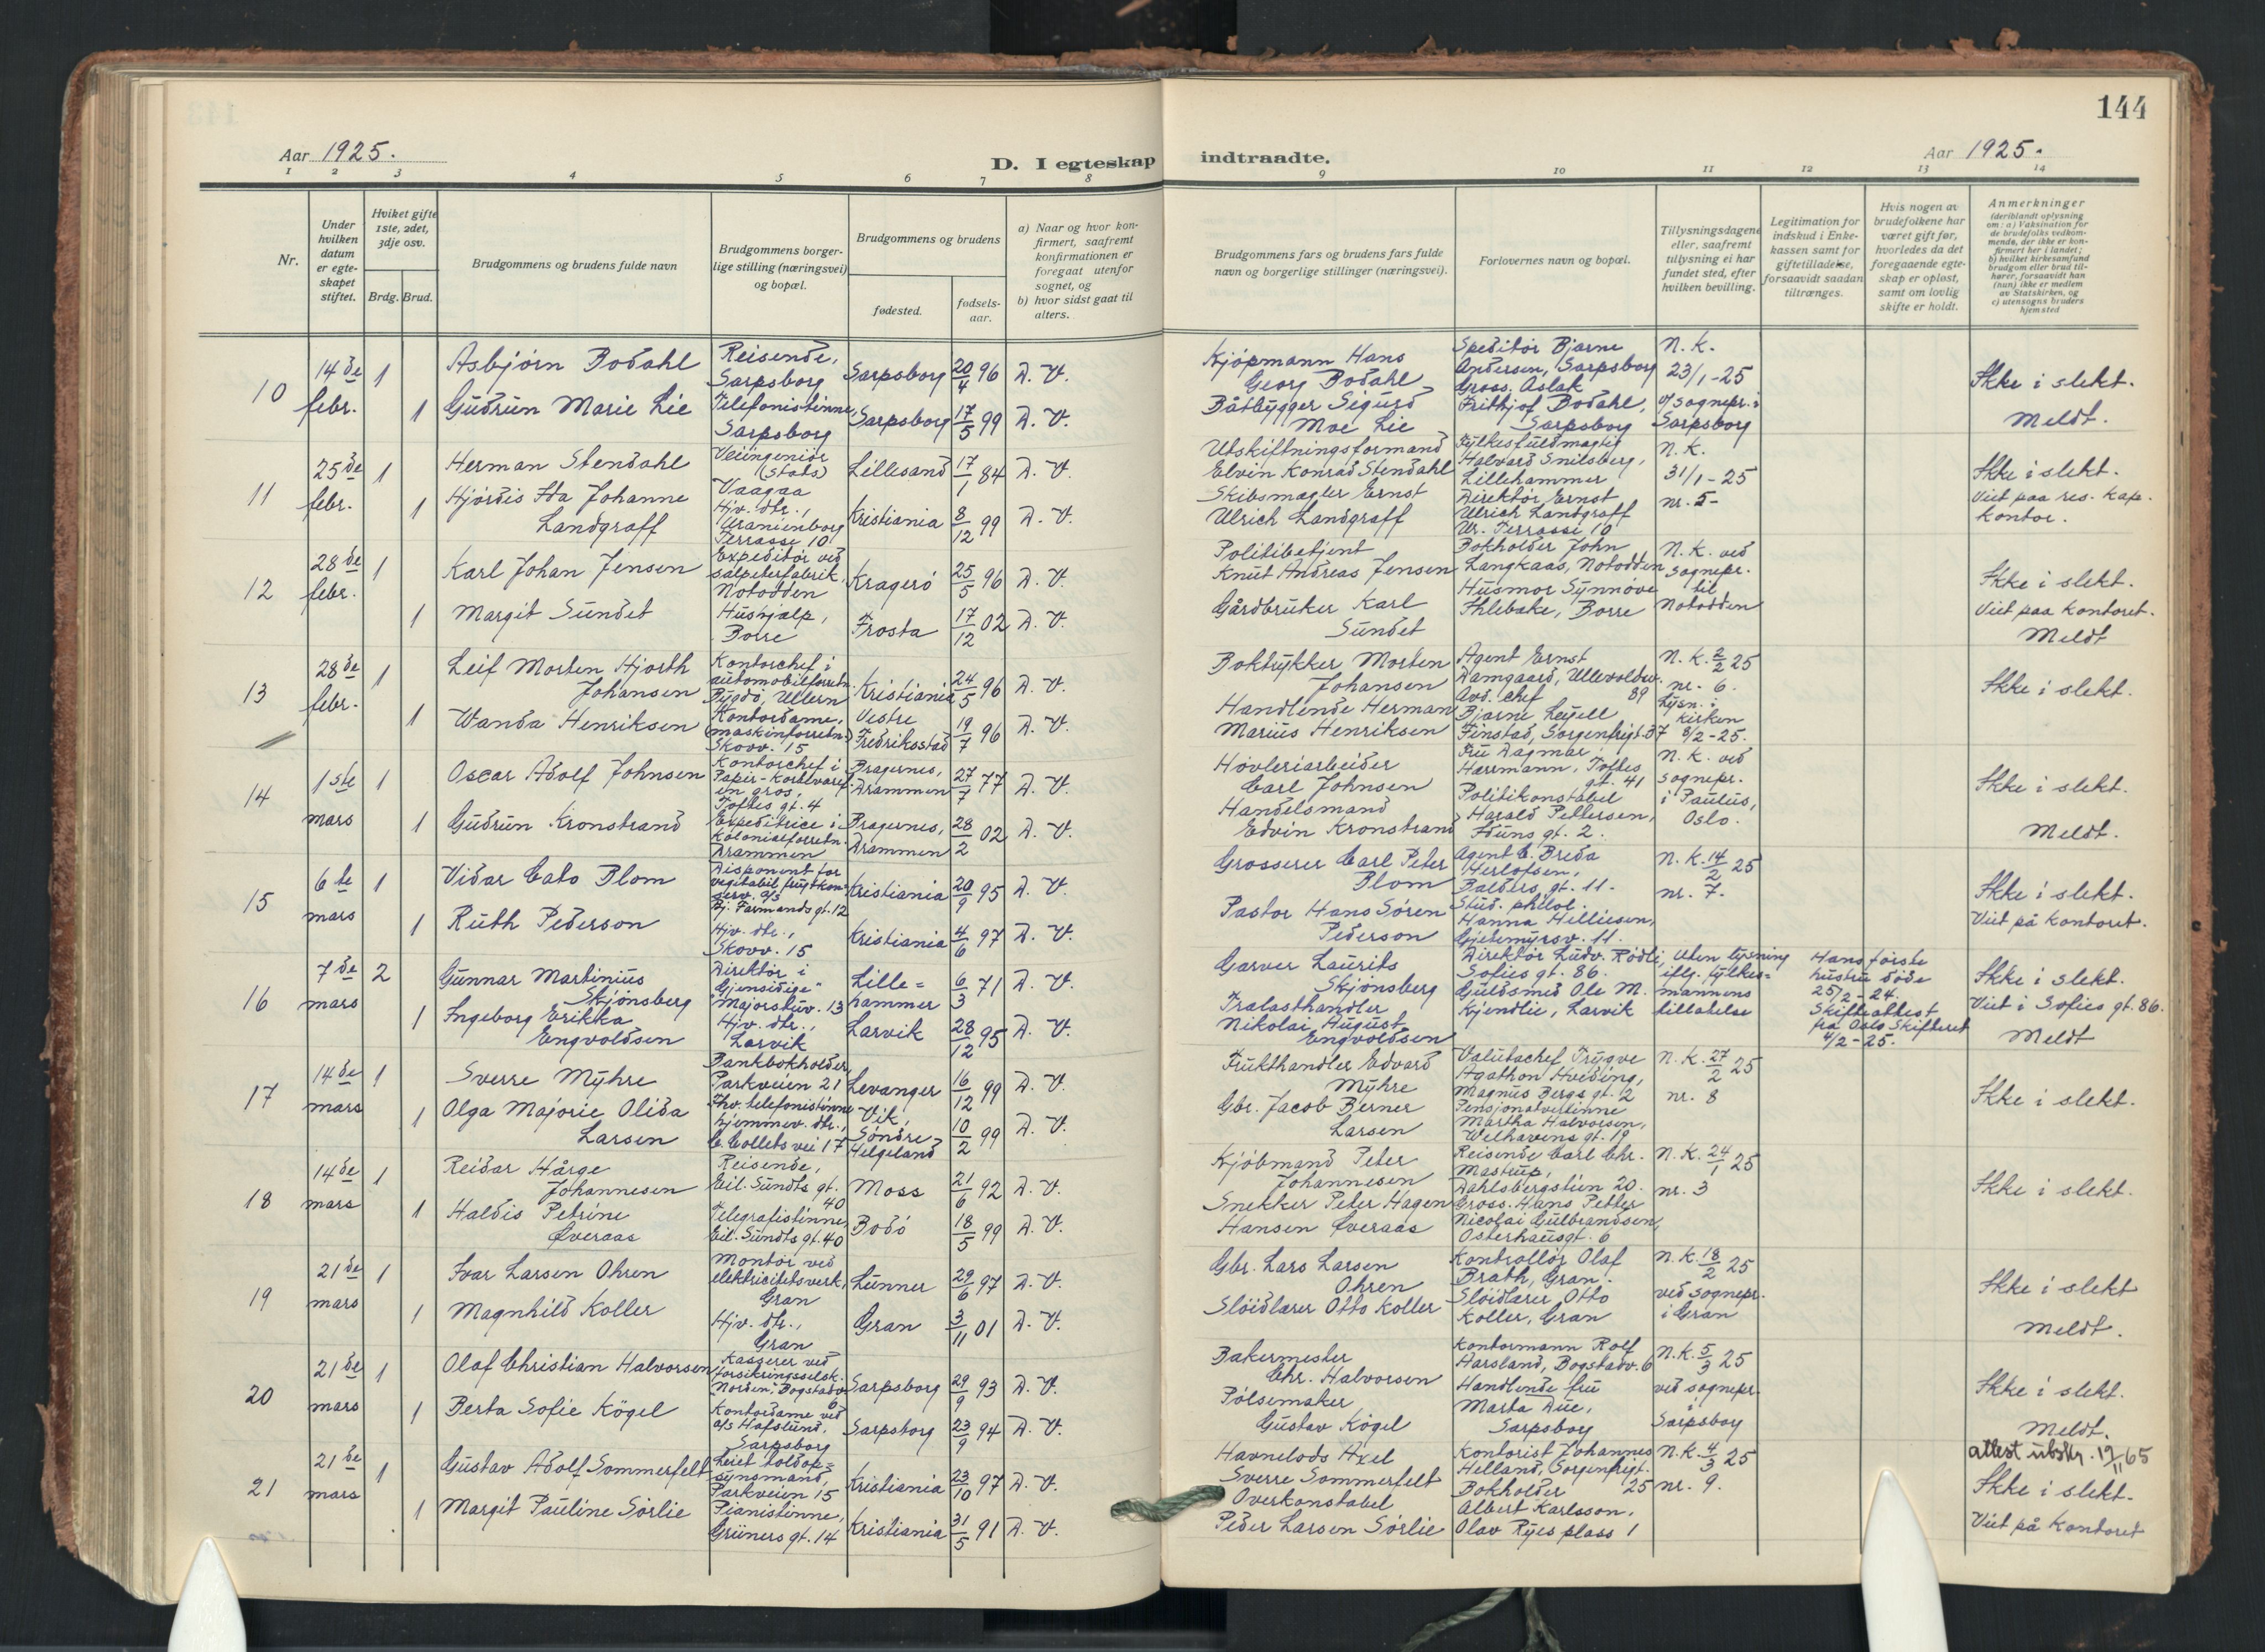 144
Aar 1925.
D. I egteskap indtraadte.
Aar 1925.
1 2 3 4 5 6 7 8 9 10 11 12 13 14
Nr.
Under
hvilken
datum
er egte-
skapet
stiftet.
Hviket gifte
1ste, 2det,
3dje osv.
Brdg. Brud.
Brudgommens og brudens fulde navn
Brudgommens borger-
lige stilling (næringsvei)
og bopæl.
Brudgommens og brudens
fødested.
fødsels-
aar.
a) Naar og hvor kon-
firmert, saafremt
konfirmationen er
foregaat utenfor
sognet, og
b) hvor sidst gaat til
alters.
Brudgommens fars og brudens fars fulde
navn og borgerlige stillinger (næringsvei).
Forlovernes navn og bopæl.
Tillysningsdagene
eller, saafremt
tillysning ei har
fundet sted, efter
hvilken bevilling.
Legitimation for
indskud i Enke-
kassen samt for
giftetilladelse,
forsaavidt saadan
tiltrænges.
Hvis nogen av
brudefolkene har
været gift før,
hvorledes da det
foregaaende egte-
skap er opløst,
samt om lovlig
skifte er holdt.
Anmerkninger
(deriblandt oplysning
om: a) Vaksination for
de brudefolks vedkom-
mende, der ikke er kon-
firmert her i landet;
b) hvilket kirkesamfund
brudgom eller brud til-
hører, forsaavidt han
(hun) ikke er medlem
av Statskirken, og
c) utensogns bruders
hjemsted
10
14de
febr.
1
Asbjørn Bodahl
Reisende,
Sarpsborg
Sarpsborg 20/4 96 D. V.
1
Gudrun Marie Lie
Telefonistinne,
Sarpsborg
Sarpsborg 17/5 99 D. V.
Kjøpmann Hans
Georg Bodahl
Båtbygger Sigurd
Moe Lie
Speditør Bjarne
Andersen, Sarpsborg
Gross. Aslak
Frithjof Bodahl,
Sarpsborg
N. K.
23/1-25
v/ sognepr. i
Sarpsborg
Ikke i slekt.
Meldt.
11
25de
febr.
1
Herman Stendahl
Veiingeniør
(stats)
Vaagaa
Lillesand 17/1 84 D. V.
1
Hjørdis Ida Johanne
Landgraff
Hjv. dtr.,
Uranienborg
Terrasse 10
Kristiania 8/12 99 D. V.
Utskiftningsformand
Elvin Konrad Stendahl
Skibsmægler Ernst
Ulrich Landgraff
Fylkesfuldmægtig
Halvard Snilsberg,
Lillehammer
Direktør Ernst
Ulrich Landgraff
Ur. Terrasse 10
N. K.
31/1-25
nr. 5-
Ikke i slekt.
Viet paa res. kap.
kontor.
12
28de
febr.
1
Karl Johan Jensen
Expeditør ved
salpeterfabrik,
Notodden
Kragerø 25/5 96 D. V.
1
Margit Sundet
Hushjælp,
Borre
Frosta 17/12 02 D. V.
Politibetjent
Knut Andreas Jensen
Gårdbruker Karl
Sundet
Bokholder John
Langkaas, Notodden
Husmor Synnøve
Ihlebake, Borre
N. K. ved
sognepr.
til
Notodden
Ikke i slekt.
Viet paa kontoret.
Meldt
13
28de
febr.
1
Leif Morten Hjorth
Johansen
Kontorchef i
automobilforretn.
Bygdø, Ullern
Kristiania 24/5 96 D. V.
1
Wanda Henriksen
Kontordame,
(maskinforretn.)
Skovv. 15
Vestre
Fredriksstad 19/7 96 D. V.
Boktrykker Morten
Johansen
Handlende Herman
Marius Henriksen
Agent Ernst
Damgaard, Ullevoldsv.
89
Avd. chef
Bjarne Leyell
Finstad, Sorgenfrigt. 37
N. K. 2/2 25
nr. 6.
Lysn. i
kirken
8/2-25.
Ikke i slekt.
14
1ste
mars
1
Oscar Adolf Johnsen
Kontorchef i
Papir-kortevaref.
en gros,
Toftes gt. 4
Bragernes,
Drammen 27/7 77 D. V.
1
Gudrun Kronstrand
Expeditrice i
kolonialforretn.
Drammen
Bragernes,
Drammen 28/2 02 D. V.
Høvleriarbeider
Carl Johnsen
Handelsmand
Edvin Kronstrand
Fru Dagmar
Harrmann, Toftes
gt. 41
Politikonstabel
Harald Pettersen,
Iduns gt. 2.
N. K. ved
sognepr.
i Paulus,
Oslo.
Ikke i slekt.
Meldt.
15
6te
mars
1
Vidar Cato Blom
Disponent for
vegitabil frugtkon-
serv. a/s
Bj. Farmands gt. 12
Kristiania 20/9 95 D. V.
1
Ruth Pederson
Hjv. dtr.,
Skovv. 15
Kristiania 4/6 97 D. V.
Grosserer Carl Peter
Blom
Pastor Hans Søren
Pederson
Agent C. Breda
Herlofsen,
Balders gt. 11.
Stud. philol.
Hanna Helliesen,
Gjetemyrsv. 11.
N. K. 14/2 25
nr. 7.
Ikke i slekt.
Viet på kontoret.
16
7de
mars
2
Gunnar Martinius
Skjønsberg
Direktør i
"Gjensidige"
Majorstuv. 13
Lille=
hammer 6/3 71 D. V.
1
Ingeborg Erikka
Engvoldsen
Hjv. dtr.,
Larvik
Larvik 28/12 95 D. V.
Garver Laurits
Skjønsberg
Tralasthandler
Nikolai August
Engvoldsen
Direktør Ludv. Rødli,
Sofies gt. 86.
Guldsmed Ole M.
Kjendlie, Larvik
Uten lysning
iflg. fylkes=
mannens
tillatelse
Hans første
hustru døde
25/2-24.
Skifteattest
fra Oslo Skifteret
4/2-25.
Ikke i slekt.
Viet i Sofies gt. 86.
Meldt
17
14de
mars
1
Sverre Myhre
Bankbokholder,
Parkveien 21
Levanger 16/12 99 D. V.
1
Olga Majorie Olida
Larsen
Fhv. telefonistinne
hjemmev. dtr.,
C. Collets vei 17
Vik,
Søndre
Helgeland 10/2 99 D. V.
Frukthandler Edvard
Myhre
Gbr. Jacob Berner
Larsen
Valutachef Trygve
Agathon Hviding,
Magnus Bergs gt. 2
Pensjonatvertinne
Martha Halvorsen,
Welhavens gt. 19
N. K. 27/2 25
nr. 8
Ikke i slekt.
18
14de
mars
1
Reidar Hårge
Johannesen
Reisende,
Eil. Sundts gt.
40
Moss 21/6 92 D. V.
1
Haldis Petrine
Øveraas
Telegrafistinne,
Eil. Sundts gt. 40
Bodø 18/5 99 D. V.
Kjøbmand Peter
Johannesen
Snekker Peter Hagen
Hansen Øveraas
Reisende Carl Chr.
Mastrup,
Dahlsbergstien 20.
Gross. Hans Petter
Nicolai Gulbrandsen,
Osterhausgt. 6
N. K. 24/1 25
nr. 3
Ikke i slekt.
19
21de
mars
1
Ivar Larsen Ohren
Montør ved
elektricitetsverk,
Gran
Lunner 29/6 97 D. V.
1
Magnhild Koller
Hjv. dtr.,
Gran
Gran 3/11 01 D. V.
Gbr. Lars Larsen
Ohren
Sløidlærer Otto Koller
Kontrollør Olaf
Brath, Gran.
Sløidlærer Otto
Koller, Gran
N. K. 18/2 25
ved sognepr.
i Gran
Ikke i slekt
Meldt.
20
21de
mars
1
Olaf Christian Halvorsen
Kasserer ved
forsikringsselsk.
"Norden", Bogstadv.
6
Sarpsborg 29/9 93 D. V.
1
Berta Sofie Kögel
Kontordame ved
a/s Hafslund,
Sarpsborg
Sarpsborg 23/9 94 D. V.
Bakermester
Chr. Halvorsen
Pølsemaker
Gustav Kögel
Kontormann Rolf
Harsland, Bogstadv. 6
Handlende fru
Marta Due,
Sarpsborg
N. K. 5/3 25
ved sognepr.
i
Sarpsborg
Ikke i slekt.
Meldt.
21
21de
mars
1
Gustav Adolf Sommerfelt
Leiet toldop=
synsmand,
Parkveien 15
Kristiania 23/10 97 D. V.
1
Margit Pauline Sørlie
Pianistinne,
Grüners gt. 14
Kristiania 31/5 91 D. V.
Havnelods Axel
Sverre Sommerfelt
Overkonstabel
Peder Larsen Sørlie
Kontorist Johannes
Helland, Sorgenfrigt.
25
Bokholder
Albert Karlsson,
Olav Ryes plass 1
N. K. 4/3 25
nr. 9.
attest utstkr. 19/11 65
Ikke i slekt.
Viet på kontoret